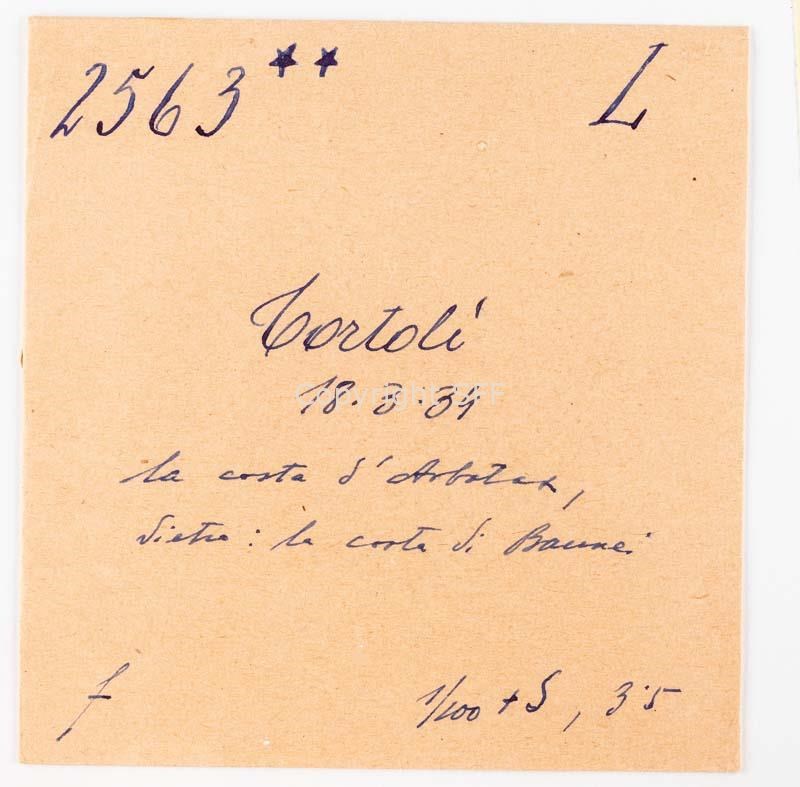 2563** L
Tortolì
18.3.34
Copyright OFF
la costa d'Arbatax,
dietro: la costa di Baunei
f
1/100 + S, 3.5